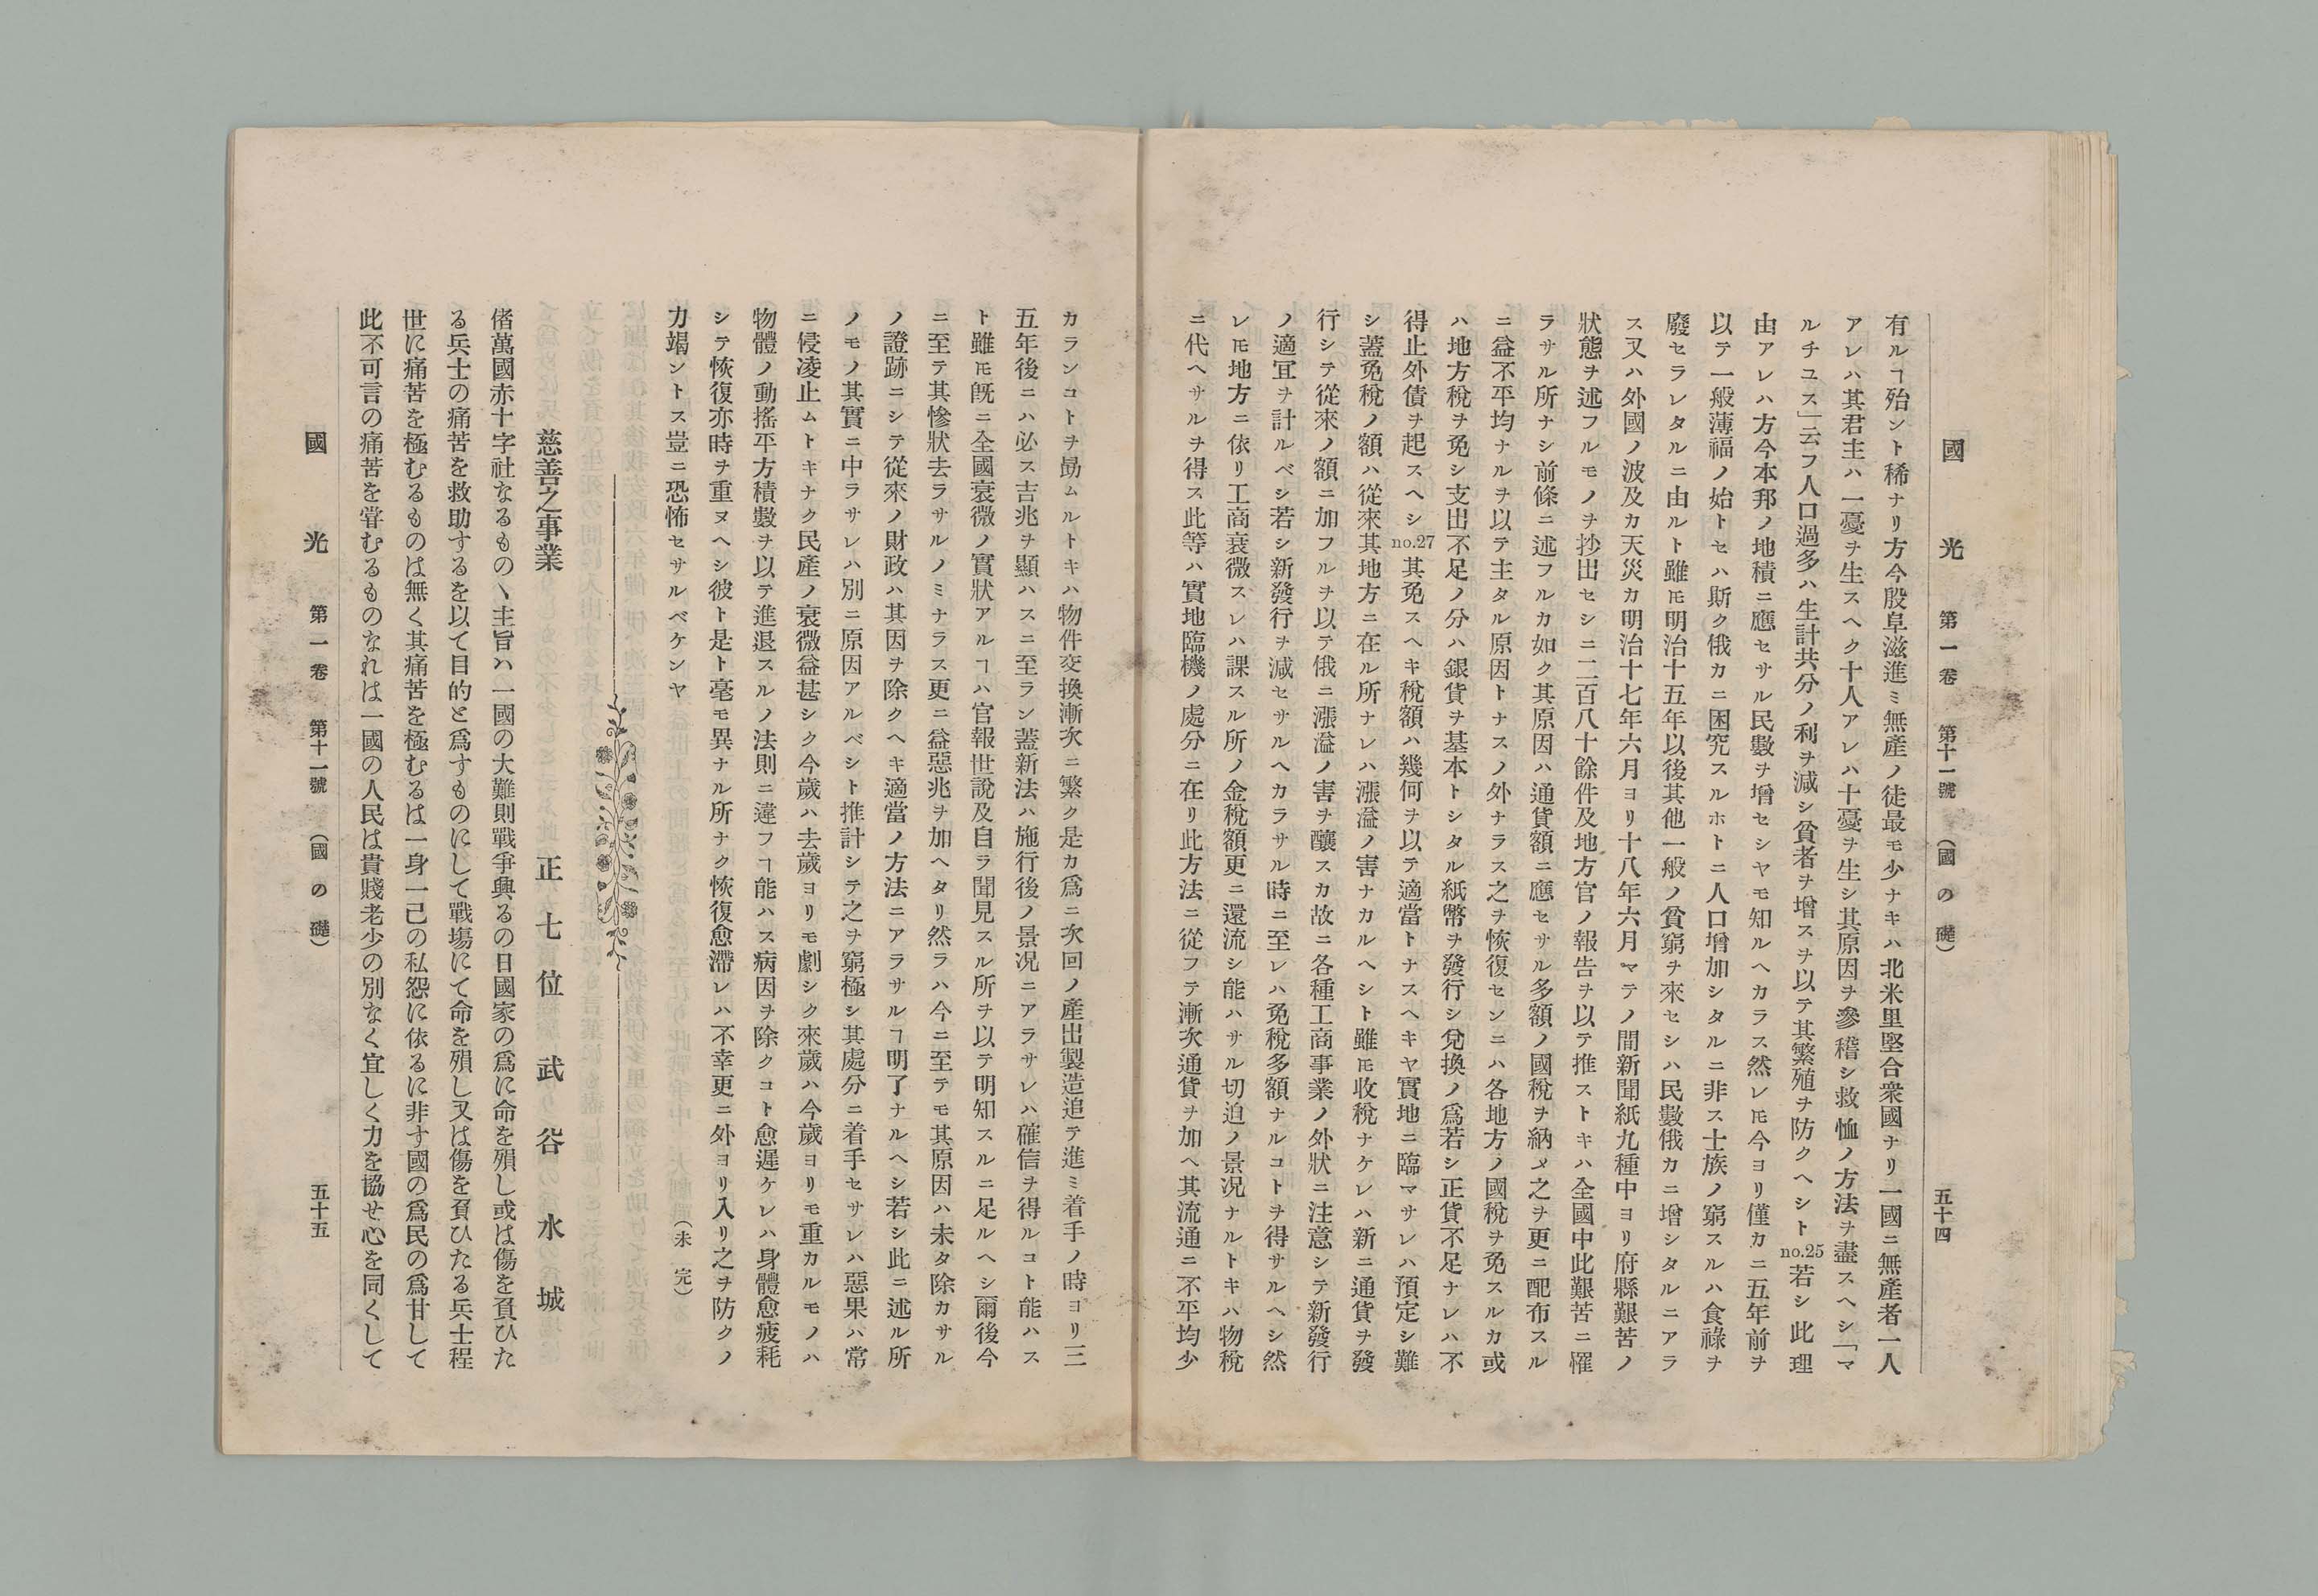 國光 第一卷 第十一號 (國の礎) 五十四
有ルヿ殆ント稀ナリ方今殷阜滋進ミ無產ノ徒最モ少ナキハ北米里堅合衆國ナリ一國ニ無產者一人
アレハ其君主ハ一憂ヲ生スヘク十人アレハ十憂ヲ生シ其原因ヲ參稽シ救恤ノ方法ヲ盡スヘシ「マ
ルチユス」云フ人口過多ハ生計共分ノ利ヲ減シ貧者ヲ增スヲ以テ其繁殖ヲ防クヘシト no.25 若シ此理
由アレハ方今本邦ノ地積ニ應セサル民數ヲ增セシヤモ知ルヘカラス然レ𪜈今ヨリ僅カニ五年前ヲ
以テ一般薄福ノ始トセハ斯ク俄カニ困究スルホトニ人口增加シタルニ非ス士族ノ窮スルハ食祿ヲ
廢セラレタルニ由ルト雖𪜈明治十五年以後其他一般ノ貧窮ヲ來セシハ民數俄カニ增シタルニアラ
ス又ハ外國ノ波及カ天災カ明治十七年六月ヨリ十八年六月マテノ間新聞紙九種中ヨリ府縣艱苦ノ
狀態ヲ述フルモノヲ抄出セシニ二百八十餘件及地方官ノ報告ヲ以テ推ストキハ全國中此艱苦ニ罹
ラサル所ナシ前條ニ述フルカ如ク其原因ハ通貨額ニ應セサル多額ノ國稅ヲ納メ之ヲ更ニ配布スル
ニ益不平均ナルヲ以テ主タル原因トナスノ外ナラス之ヲ恢復センニハ各地方ノ國稅ヲ免スルカ或
ハ地方稅ヲ免シ支出不足ノ分ハ銀貨ヲ基本トシタル紙幣ヲ發行シ兌換ノ爲若シ正貨不足ナレハ不
得止外債ヲ起スヘシ no.27 其免スヘキ稅額ハ幾何ヲ以テ適當トナスヘキヤ實地ニ臨マサレハ預定シ難
シ蓋免稅ノ額ハ從來其地方ニ在ル所ナレハ漲溢ノ害ナカルヘシト雖𪜈收稅ナケレハ新ニ通貨ヲ發
行シテ從來ノ額ニ加フルヲ以テ俄ニ漲溢ノ害ヲ釀スカ故ニ各種工商事業ノ外狀ニ注意シテ新發行
ノ適宜ヲ計ルベシ若シ新發行ヲ減セサルヘカラサル時ニ至レハ免稅多額ナルコトヲ得サルヘシ然
レ𪜈地方ニ依リ工商衰微スレハ課スル所ノ金稅額更ニ還流シ能ハサル切迫ノ景況ナルトキハ物稅
ニ代ヘサルヲ得ス此等ハ實地臨機ノ處分ニ在リ此方法ニ從フテ漸次通貨ヲ加ヘ其流通ニ不平均少
カランコトヲ勗ムルトキハ物件交換漸次ニ繁ク是カ爲ニ次回ノ產出製造追テ進ミ着手ノ時ヨリ三
五年後ニハ必ス吉兆ヲ顯ハスニ至ラン蓋新法ハ施行後ノ景況ニアラサレハ確信ヲ得ルコト能ハス
ト雖𪜈既ニ全國衰微ノ實狀アルヿハ官報世說及自ラ聞見スル所ヲ以テ明知スルニ足ルヘシ爾後今
ニ至テ其慘狀去ラサルノミナラス更ニ益惡兆ヲ加ヘタリ然ラハ今ニ至テモ其原因ハ未タ除カサル
ノ證跡ニシテ從來ノ財政ハ其因ヲ除クヘキ適當ノ方法ニアラサルヿ明了ナルヘシ若シ此ニ述ル所
ノモノ其實ニ中ラサレハ別ニ原因アルベシト推計シテ之ヲ窮極シ其處分ニ着手セサレハ惡果ハ常
ニ侵凌止ムトキナク民產ノ衰微益甚シク今歲ハ去歲ヨリモ劇シク來歲ハ今歲ヨリモ重カルモノハ
物體ノ動搖平方積數ヲ以テ進退スルノ法則ニ違フヿ能ハス病因ヲ除クコト愈遲ケレハ身體愈疲耗
シテ恢復亦時ヲ重ヌヘシ彼ト是ト毫モ異ナル所ナク恢復愈滯レハ不幸更ニ外ヨリ入リ之ヲ防クノ
力竭ントス豈ニ恐怖セサルベケンヤ (未完)
慈善之事業 正七位 武谷水城
偖萬國赤十字社なるものヽ主旨ハ一國の大難則戰爭興るの日國家の爲に命を殞し或は傷を負ひた
る兵士の痛苦を救助するを以て目的と爲すものにして戰塲にて命を殞し又は傷を負ひたる兵士程
世に痛苦を極むるものは無く其痛苦を極むるは一身一己の私怨に依るに非す國の爲民の爲甘して
此不可言の痛苦を甞むるものなれは一國の人民は貴賤老少の別なく宜しく力を協せ心を同くして
國光 第一卷 第十一號 (國の礎) 五十五